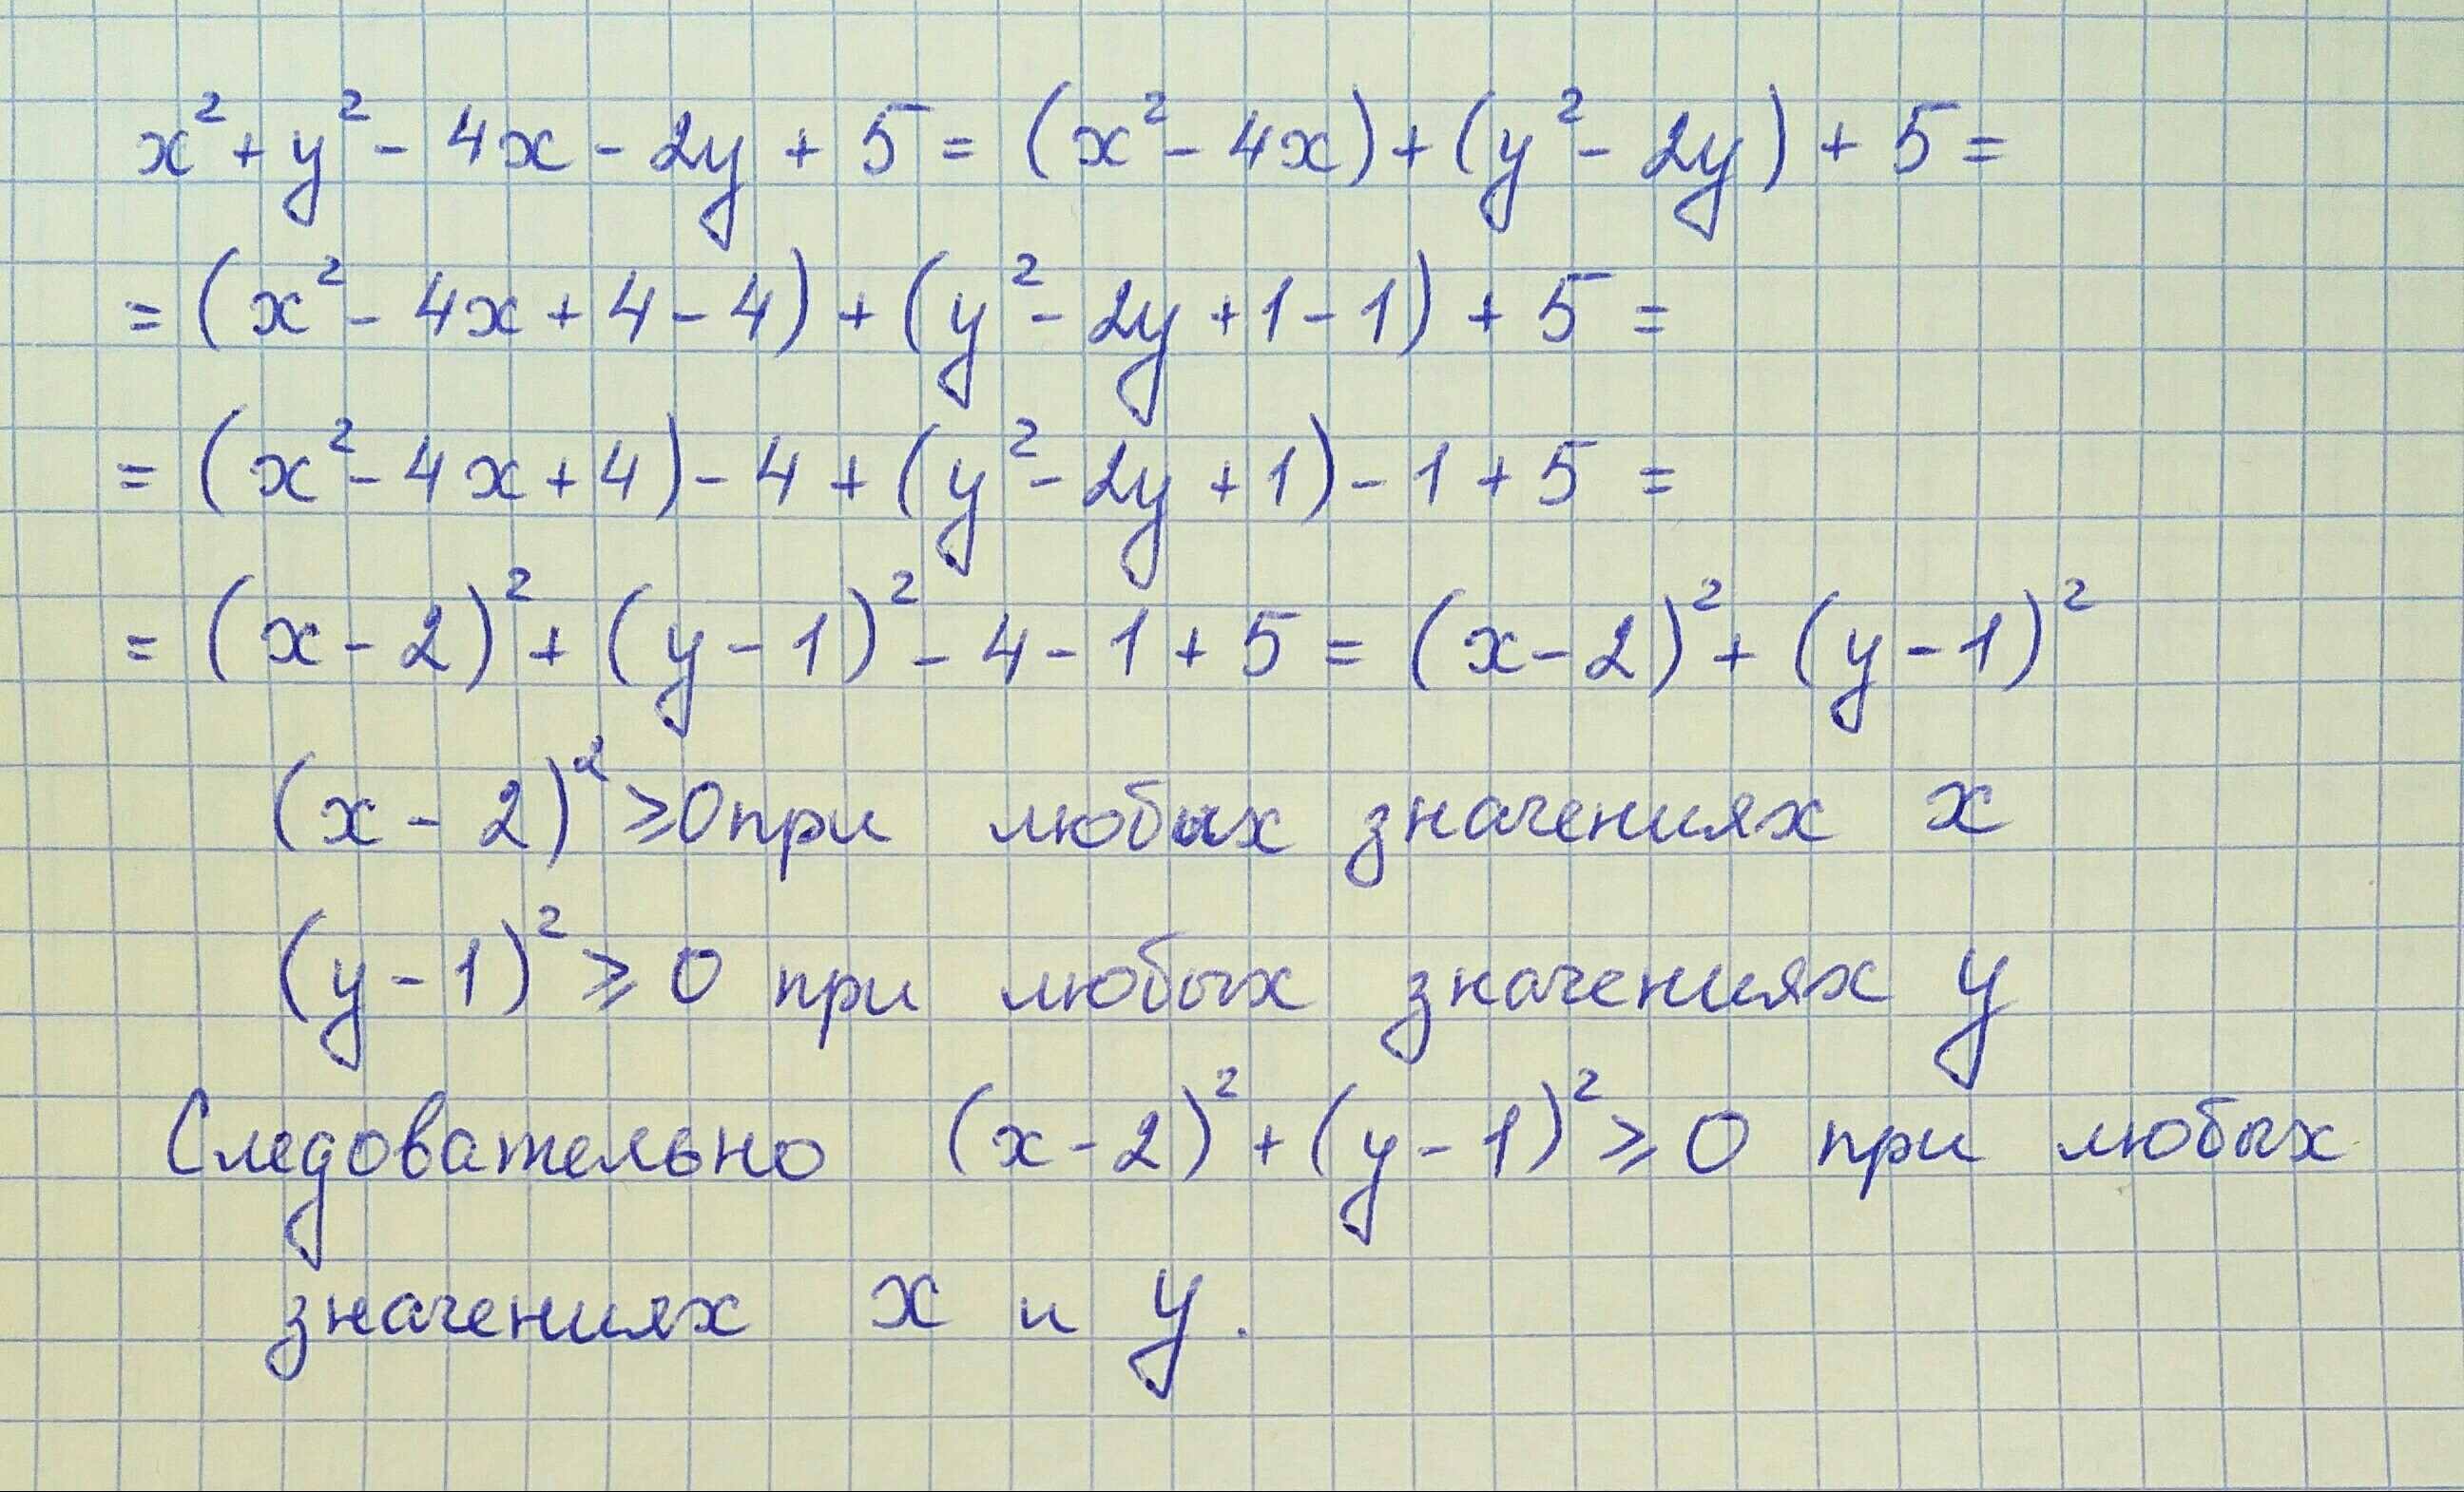 x² + y² - 4x - 2y + 5 = (x² - 4x) + (y² - 2y) + 5 =
= (x² - 4x + 4 - 4) + (y² - 2y + 1 - 1) + 5 =
= (x² - 4x + 4) - 4 + (y² - 2y + 1) - 1 + 5 =
= (x - 2)² + (y - 1)² - 4 - 1 + 5 = (x - 2)² + (y - 1)²
(x - 2)² ⩾ 0 при любых значениях x
(y - 1)² ⩾ 0 при любых значениях y
Следовательно (x - 2)² + (y - 1)² ⩾ 0 при любых
значениях x и y.